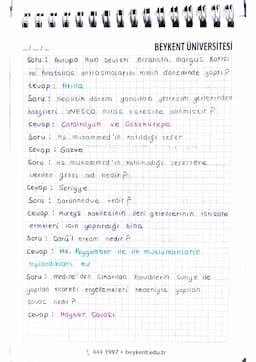 .../.../...
BEYKENT ÜNİVERSİTESİ
Soru : Avrupa Hun Devleti Bizansla, margus Barışı
ve Anatolius antlaşmalarını kimin döneminde yaptı?
Cevap : Atilla
Soru : Neolitik dönemi yansıtan yerleşim yerlerinden
hangileri UNESCO miras listesine alınmıştır?
Cevap : Çatalhöyük ve Göbeklitepe
Soru : Hz. muhammed'in katıldığı sefer
Cevap : Gazve
Soru : Hz. muhammed'in katılmadığı seferlere
verilen genel ad nedir?
Cevap : Seriyye
Soru : Darünnedve nedir?
Cevap : Kureyş kabilesinin ileri gelenlerinin istişare
etmeleri için yapıldığı bina
Soru : Darü'l erkam nedir?
Cevap : Hz. Peygamber ile ilk müslümanların
toplandıkları ev
Soru : medine'den çıkarılan Yahudilerin Suriye ile
yapılan ticareti engellemeleri nedeniyle yapılan
savaş nedir?
Cevap : Hayber Savaşı
444 1997 • beykent.edu.tr